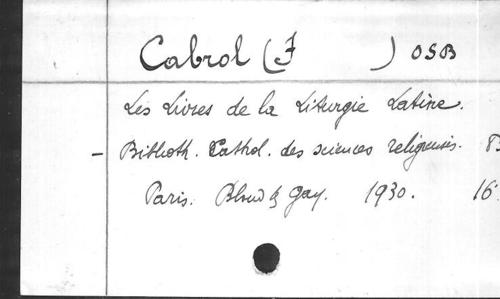 Cabrol (F ) OSB
Les Livres de la Liturgie Latine.
- Biblioth. Cathol. des sciences religieuses.
Paris. Bloud & Gay. 1930. 16